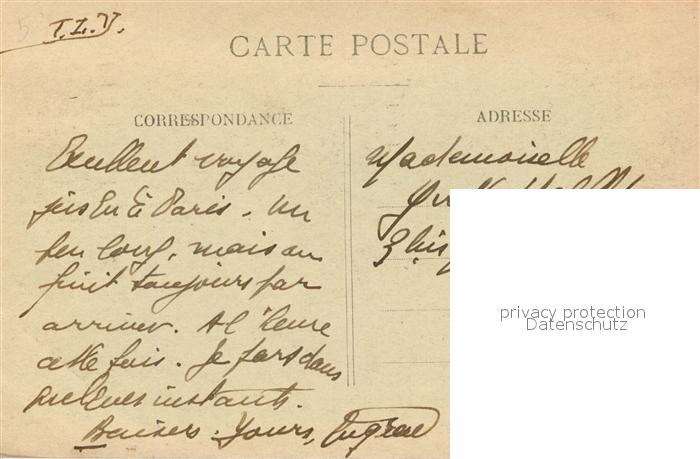 T.L.V.
CARTE POSTALE
CORRESPONDANCE
ADRESSE
Excellent voyage
jusqu'à Paris. Un
peu long, mais on
finit toujours par
arriver. A l'heure
cette fois. Je pars dans
quelques instants.
Baisers. Yours, Eugène
Mademoiselle
3 bis
privacy protection
Datenschutz